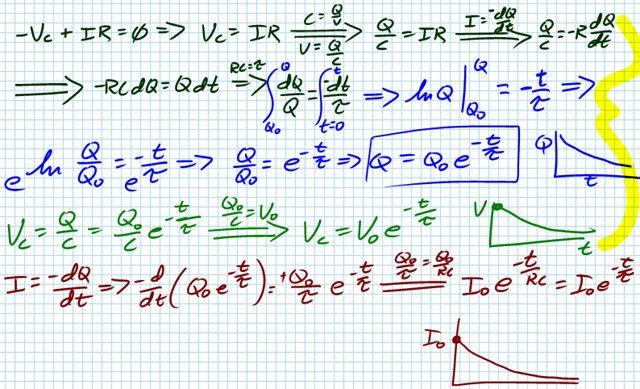 -Vc + IR = ∅ => Vc = IR =C=Q/V, V=Q/C=> Q/C = IR =I=-dQ/dt=> Q/C = -R dQ/dt
=> -RC dQ = Q dt =RC=τ=> ∫_{Q₀}^{Q} dQ/Q = ∫_{t=0}^{t} -dt/τ => ln Q |_{Q₀}^{Q} = -t/τ =>
e^{ln Q/Q₀} = e^{-t/τ} => Q/Q₀ = e^{-t/τ} => Q = Q₀ e^{-t/τ} Q t
Vc = Q/C = Q₀/C e^{-t/τ} =Q₀/C=V₀=> Vc = V₀ e^{-t/τ} V t
I = -dQ/dt => -d/dt (Q₀ e^{-t/τ}) = +Q₀/τ e^{-t/τ} =Q₀/τ = Q₀/RC= I₀ e^{-t/RC} = I₀ e^{-t/τ}
I₀